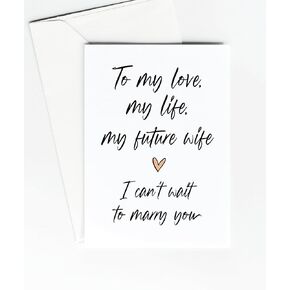 To my love,
my life,
my future wife
I can't wait
to marry you